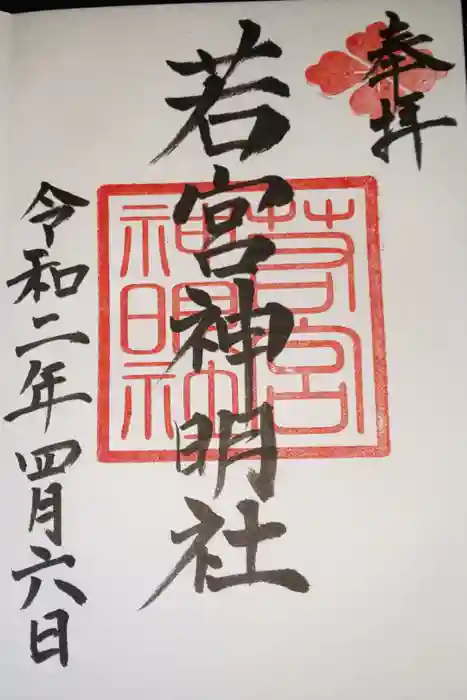 奉拝
若宮神明社
若宮
神明社
令和二年四月六日